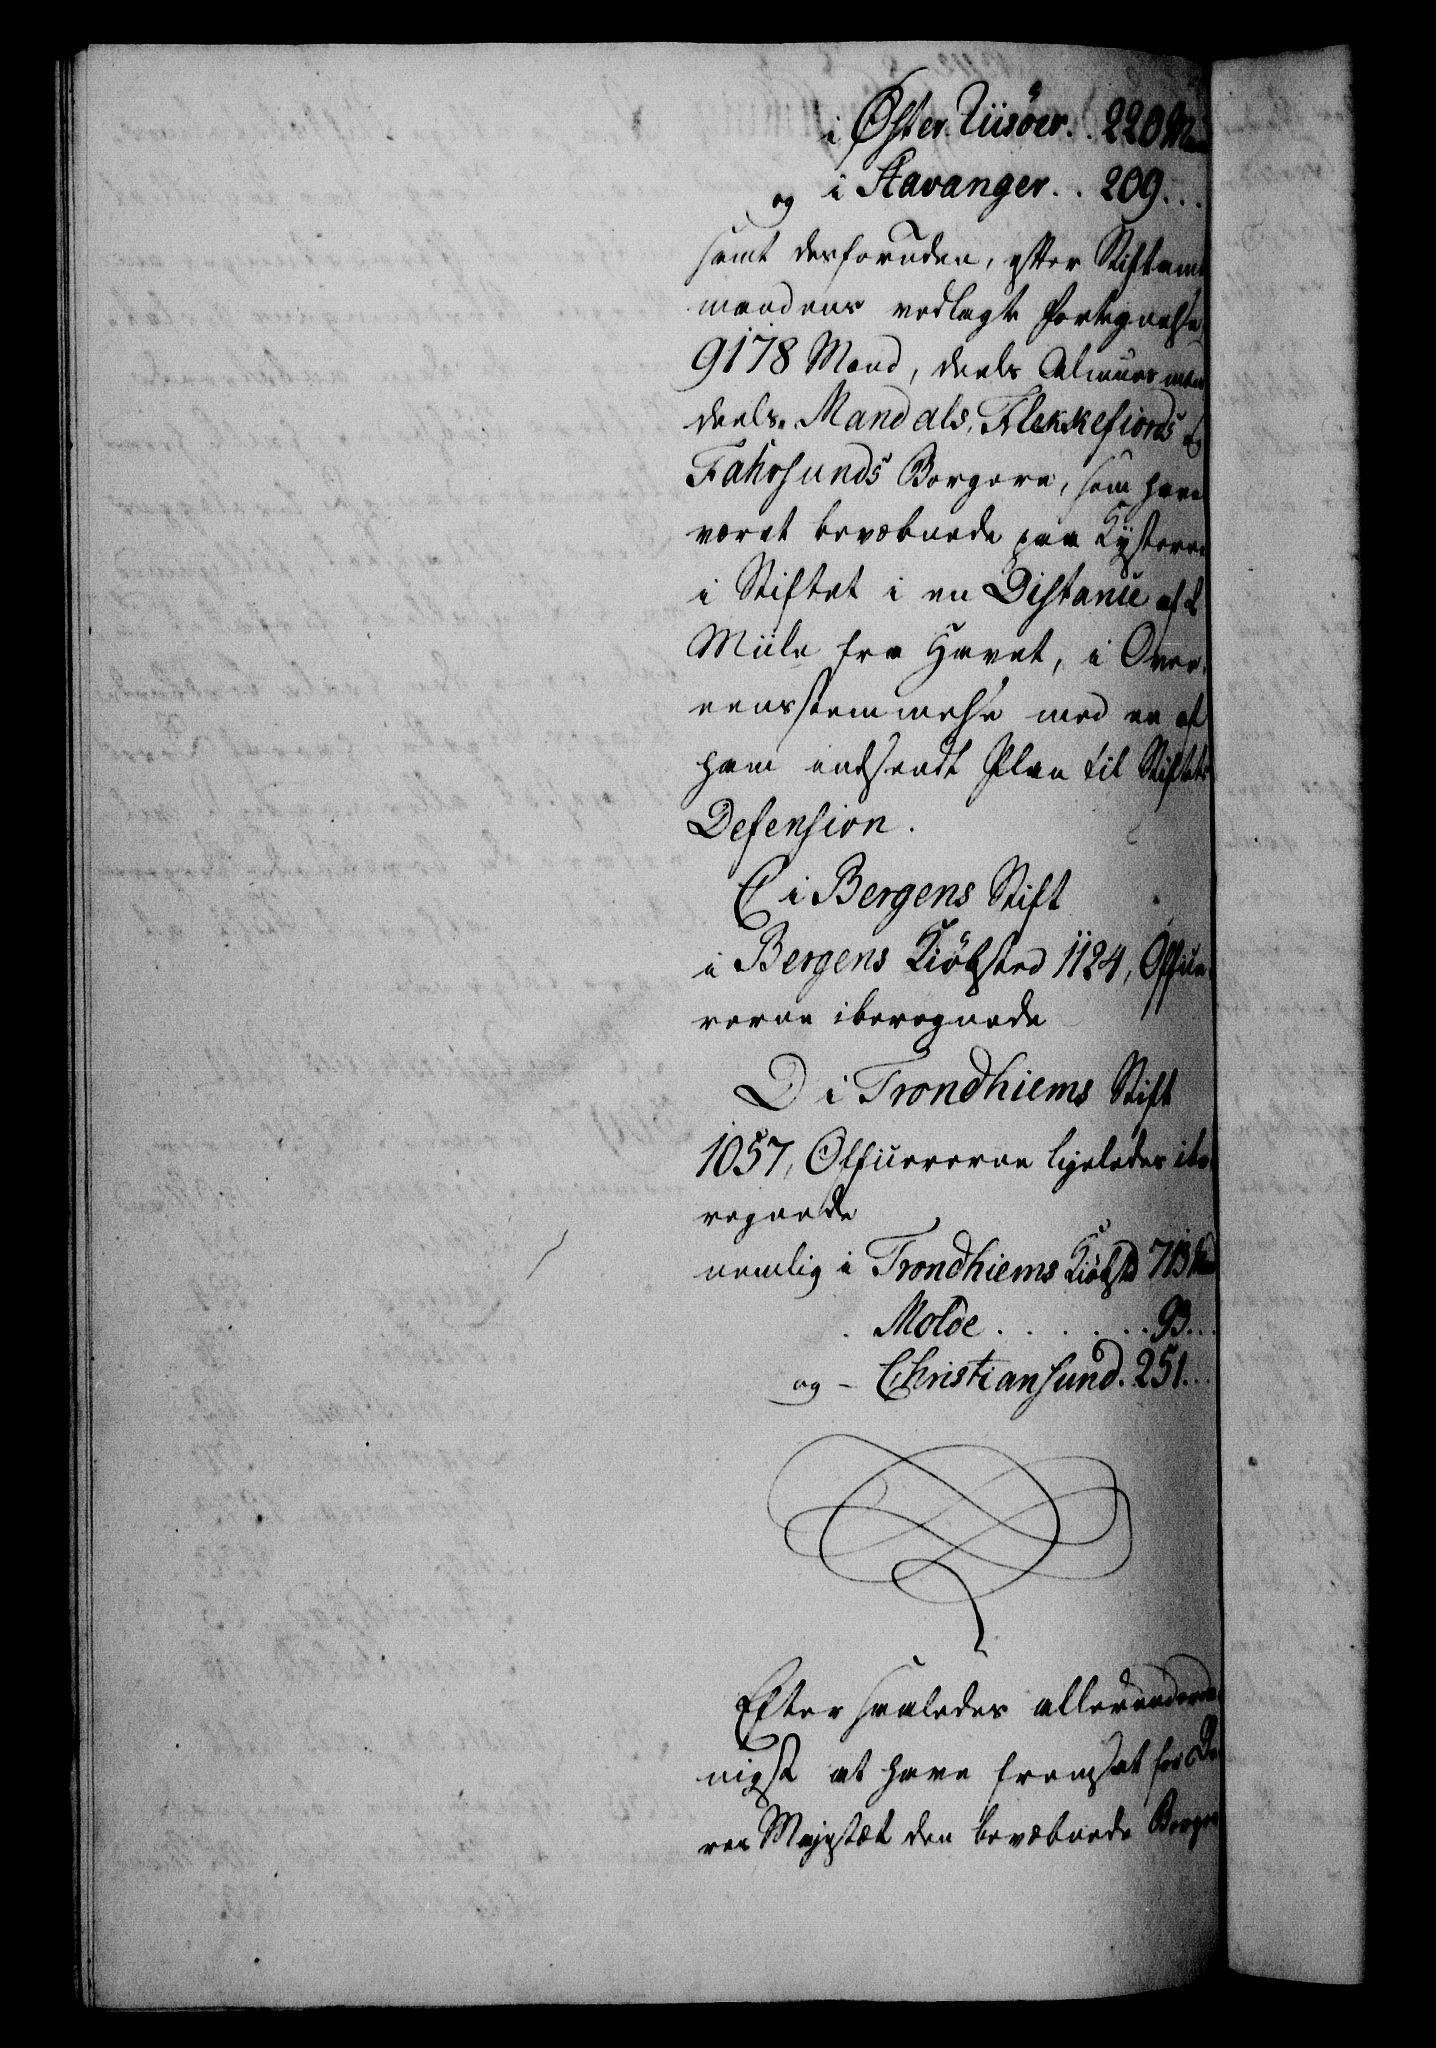 i Øster Riisöer . . 220 Man
og i Stavanger . . 209 . . .
samt desforuden, efter Stiftamt
mandens vedlagte Fortegnelse
9178 Mand, deels Almues mæn
deels Mandals, Flekkefiords &
Fahrsunds Borgere, som have
været bevæbnede paa Kysterne
i Stiftet i en Distance af 2
Miile fra Havet, i Over,
eensstemmelse med en af
ham indsendt Plan til Stiftets
Defension.
C i Bergens Stift
i Bergens Kiöbsted 1124, Office,
rerne iberegnede
D i Trondhiems Stift
1057, Officererne ligeledes ibe,
regnede
nemlig i Trondhiems Kiöbstd 713 Md
Molde . . . . . . . 93 . . .
og - Christiansund . 251 . . .
Efter saaledes allerunderda,
nigst at have fremsat for De,
res Majestæt den bevæbnede Borger